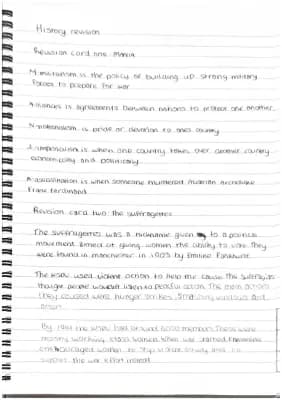 History revision
Revision card one: MANIA
M-militarism is the policy of building up strong military
forces to prepare for war
A-liances is agreements between nations to protect one another
N-nationalism is pride or devotion to ones country
I-imperialism is when one country takes over another country
economically and politically
A-assassination is when someone murdered Austrian archduke
Franz Ferdinand
Revision card two: the suffragettes
The suffragettes was a nickname given to a political
movement aimed at giving women the ability to vote. They
were found in manchester in 1903 by Emiline Pankhurst.
The WSPU used violent action to help the cause the suffragettes
thought people wouldn't listen to peaceful action. The main actions
they caused were hunger strikes, smashing windows and
arson.
By 1914 the WSPU had around 5000 members. These were
mostly working class women. When war started Emmeline
encouraged women to stop violent activity and
support the war effort instead.